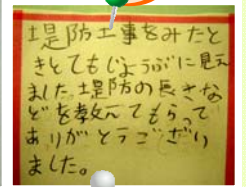 堤防工事をみたと
きとてもじょうぶに見え
ました。堤防の長さな
どを教えてもらって
ありがとうござい
ました。